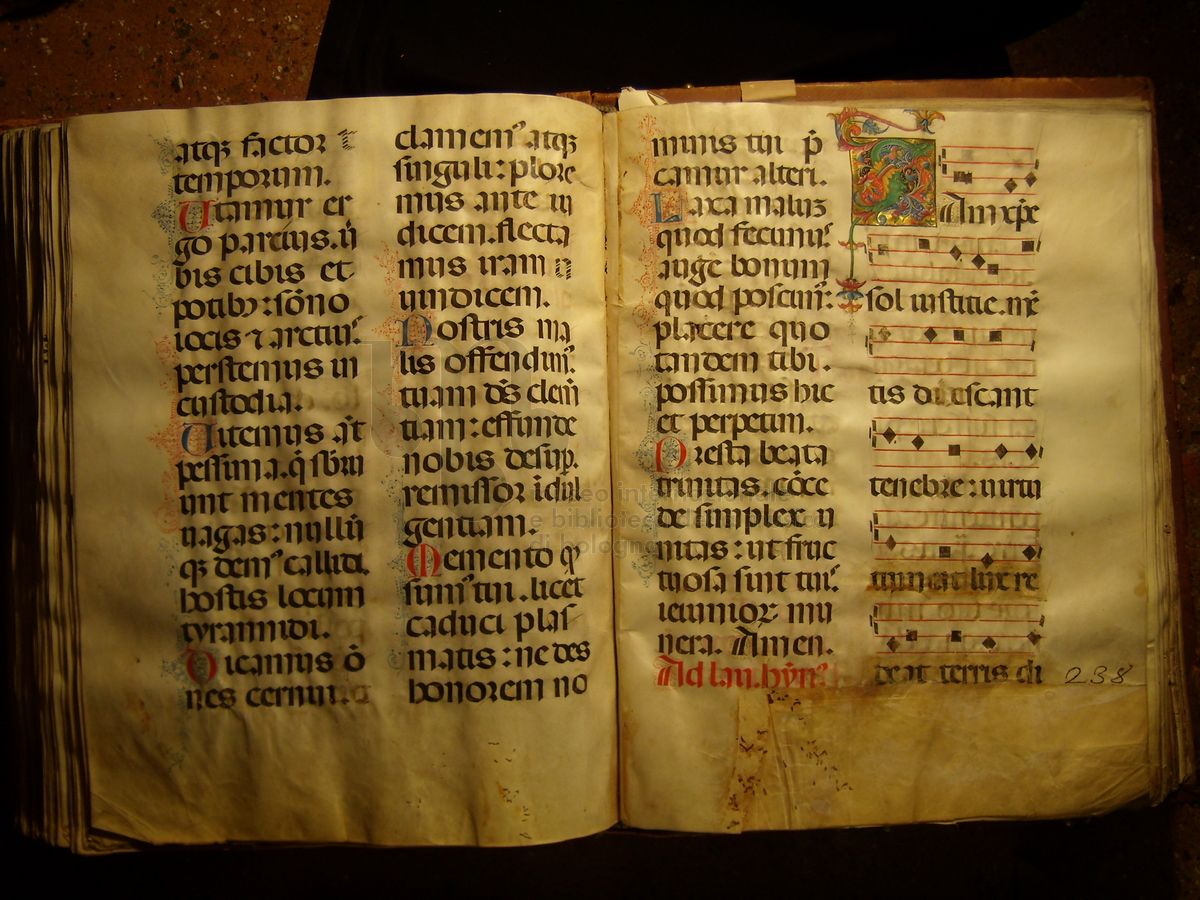 atqꝫ factor
temporum.
Utamur er
go parcius. ũ
bis cibis et
potibꝰ: sõno
iocis ⁊ arctiuꝰ
perstemus in
custodia.
Uitemus aũt
pessima. q̃ sbrui
unt mentes
uagas: nullũ
qꝫ demꝰ callidi
hostis locum
tyrannidi.
Dicamus õ
nes cernui.
clamemꝰ atqꝫ
singuli: plore
mus ante iu
dicem. flecta
mus iram
uindicem.
Nostris ma
lis offendimꝰ
tuam dẽs clem̃
tiam: effunde
nobis desup̱.
remissor ĩdul
gentiam.
Memento qꝫ
sumꝰ tui. licet
caduci plas
matis: ne des
honorem no
minis tui p̃
camur alteri.
Laxa maluꝫ
quod fecimꝰ
auge bonum
quod poscimꝰ:
placere quo
tandem tibi.
possimus hic
et perpetim.
Presta beata
trinitas. cõce
de simplex u
nitas: ut fruc
tuosa sint tuiꝰ
ieiunioꝝ mu
nera. Amen.
Ad lau. hỹnꝰ
Iam xp̃e
sol iustitie. mẽ
tis dilescant
tenebre: uirtu
tum ut lux re
deat terris di
238